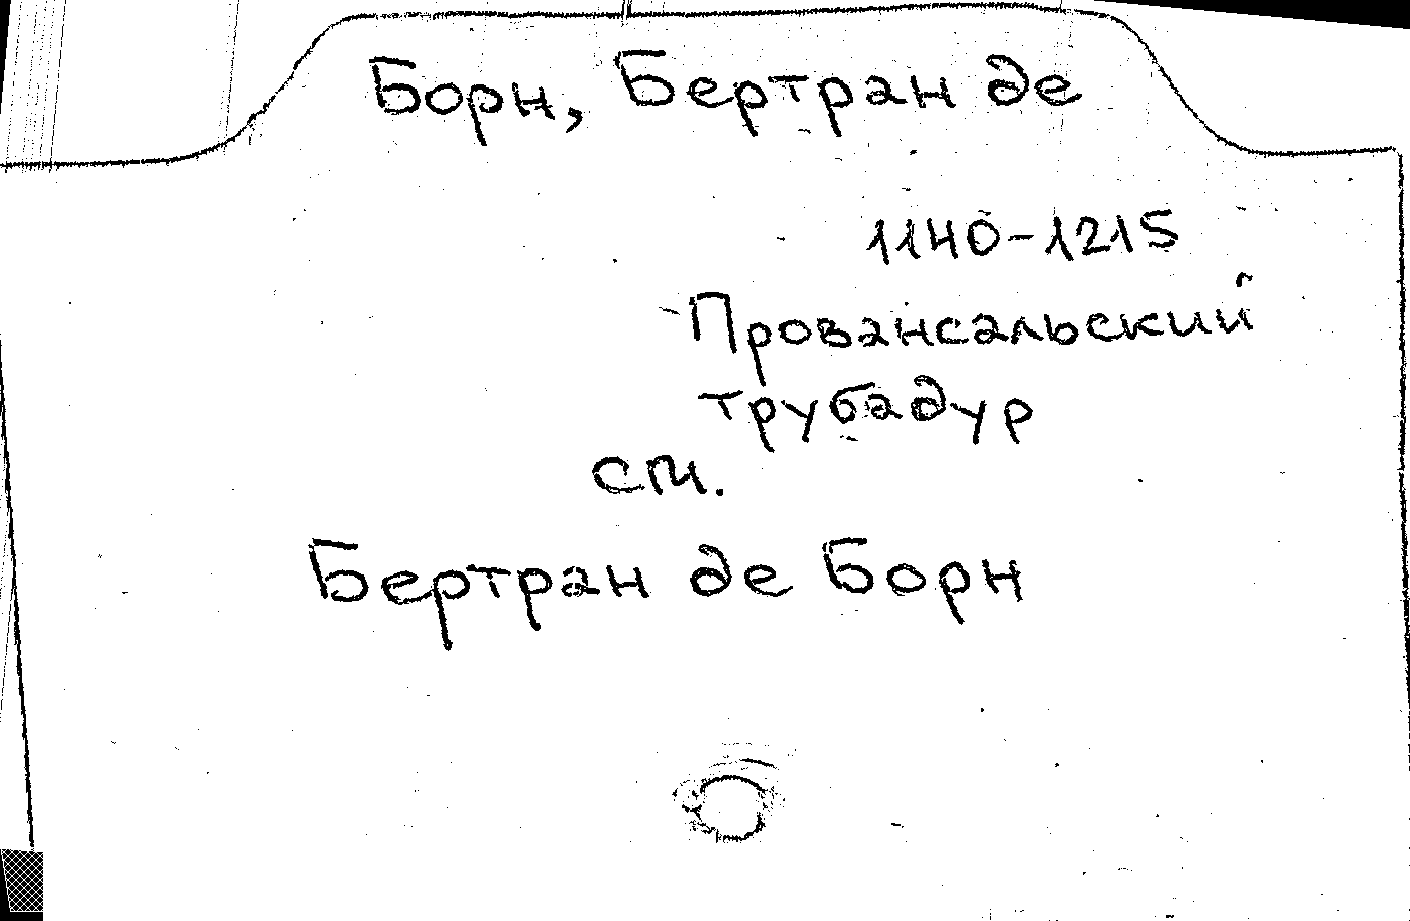 Борн, Бертран де
1140-1215
Провансальский
трубадур
см.
Бертран де Борн